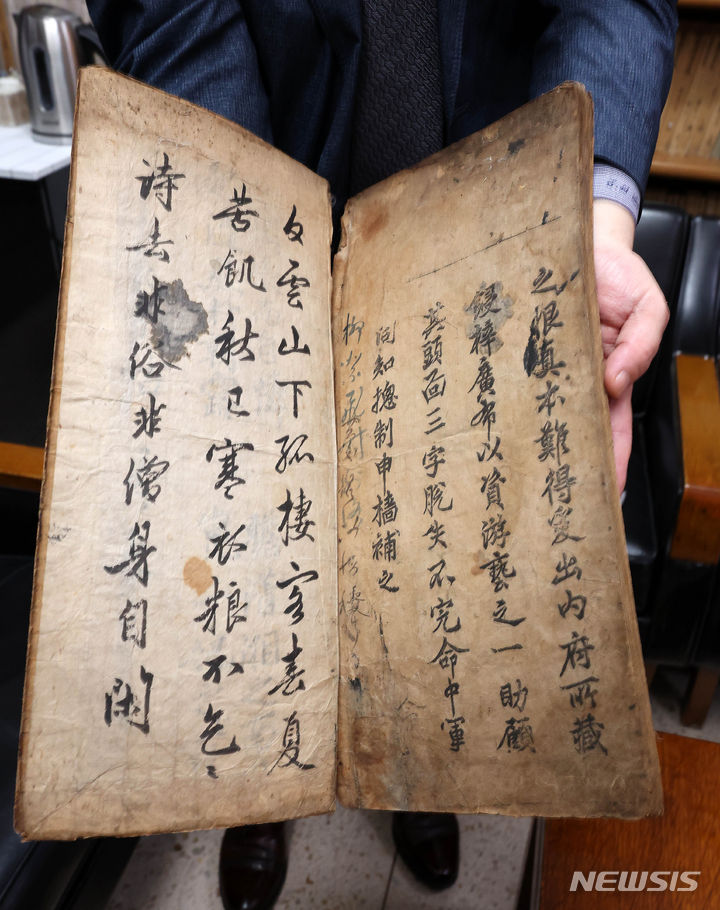 之恨慎本難得爰出内府所藏
鋟梓廣布以資游藝之一助顧
其頭面三字脫失不完命中軍
同知摠制申檣補之
白雲山下孤棲客春夏
苦飢秋已寒衣粮不乞
詩去非俗非僧身自閑
NEWSIS